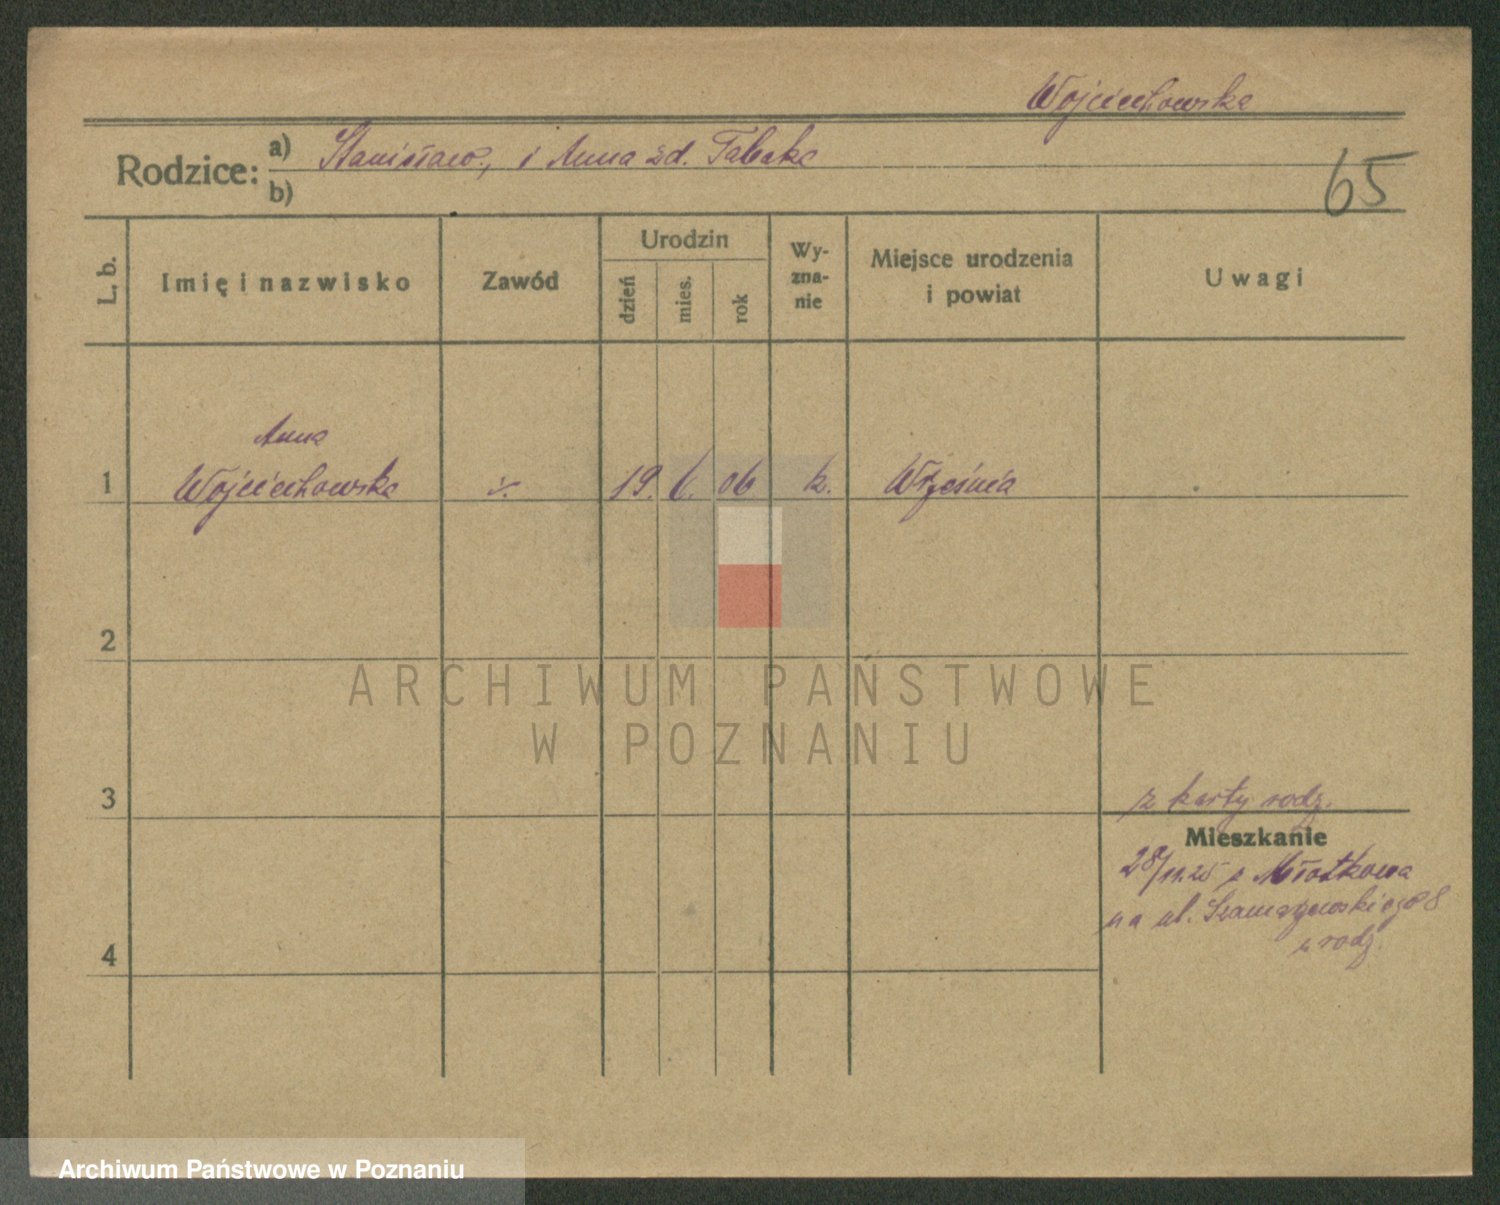 Wojciechowska
Rodzice: a) Stanisław, i Anna zd. Tabaka
b)
65
L. b.
Imię i nazwisko
Zawód
Urodzin
dzień
mies.
rok
Wy-
zna-
nie
Miejsce urodzenia
i powiat
Uwagi
1
Anna
Wojciechowska
19. 6. 06
k.
Września
2
3
4
z karty rodz.
Mieszkanie
28/11.25 z
na ul. Szamarzewskiego 8
z rodz.
ARCHIWUM PAŃSTWOWE
W POZNANIU
Archiwum Państwowe w Poznaniu